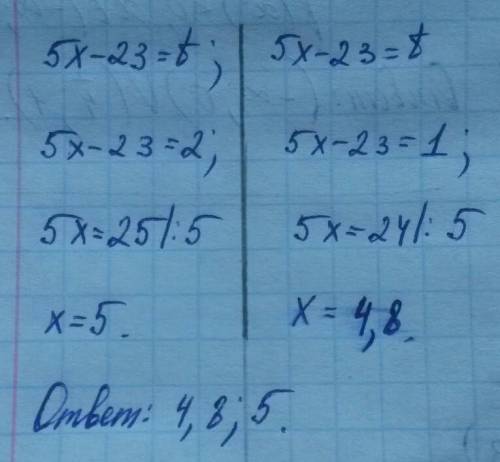 5x-23=t; 5x-23=t
5x-23=2; 5x-23=1;
5x=25|:5 5x=24|:5
x=5. x=4,8.
Ответ: 4,8; 5.